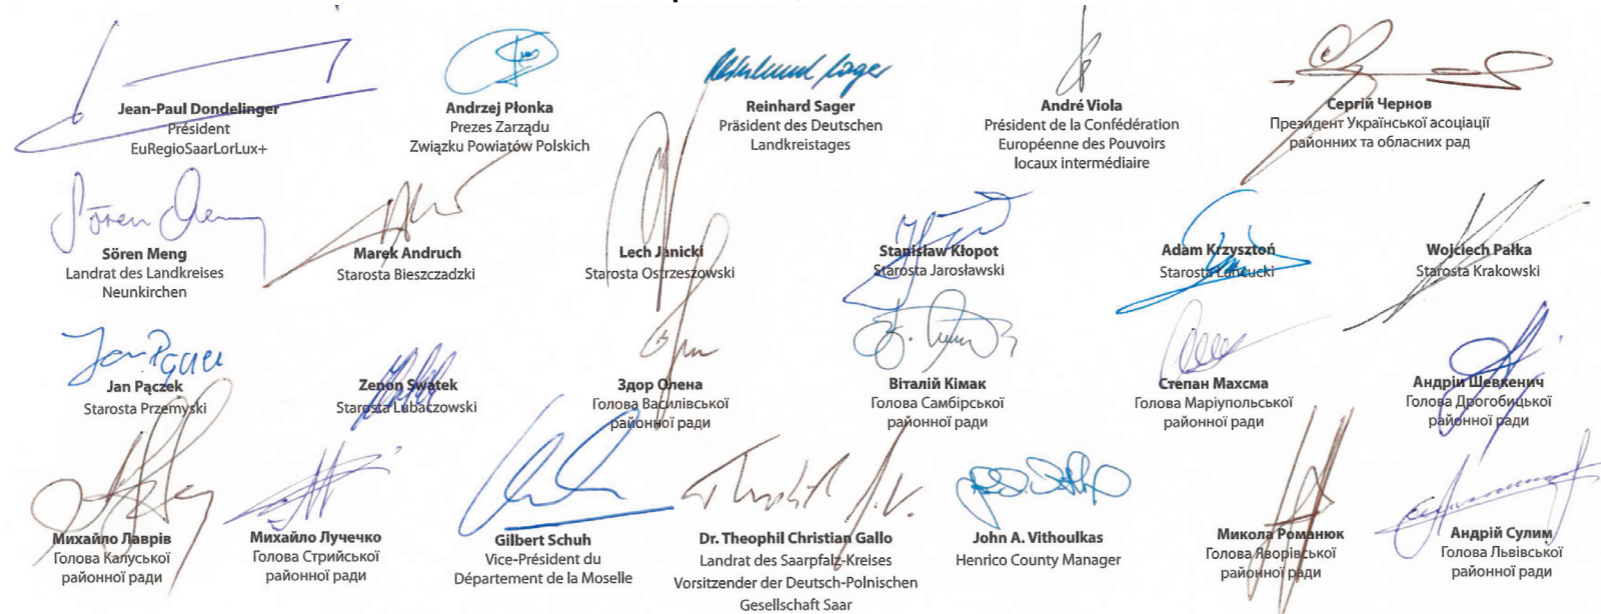 Jean-Paul Dondelinger
Président
EuRegioSaarLorLux+
Andrzej Płonka
Prezes Zarządu
Związku Powiatów Polskich
Reinhard Sager
Reinhard Sager
Präsident des Deutschen
Landkreistages
André Viola
Président de la Confédération
Européenne des Pouvoirs
locaux intermédiaire
Сергій Чернов
Президент Української асоціації
районних та обласних рад
Sören Meng
Sören Meng
Landrat des Landkreises
Neunkirchen
Marek Andruch
Starosta Bieszczadzki
Lech Janicki
Starosta Ostrzeszowski
Stanisław Kłopot
Starosta Jarosławski
Adam Krzysztoń
Starosta Łańcucki
Wojciech Pałka
Starosta Krakowski
Jan Pączek
Jan Pączek
Starosta Przemyski
Zenon Swatek
Starosta Lubaczowski
Здор Олена
Голова Василівської
районної ради
Віталій Кімак
Голова Самбірської
районної ради
Степан Махсма
Голова Маріупольської
районної ради
Андрій Шевкенич
Голова Дрогобицької
районної ради
Михайло Лаврів
Голова Калуської
районної ради
Михайло Лучечко
Голова Стрийської
районної ради
Gilbert Schuh
Vice-Président du
Département de la Moselle
Dr. Theophil Christian Gallo
Landrat des Saarpfalz-Kreises
Vorsitzender der Deutsch-Polnischen
Gesellschaft Saar
John A. Vithoulkas
Henrico County Manager
Микола Романюк
Голова Яворівської
районної ради
Андрій Сулим
Голова Львівської
районної ради